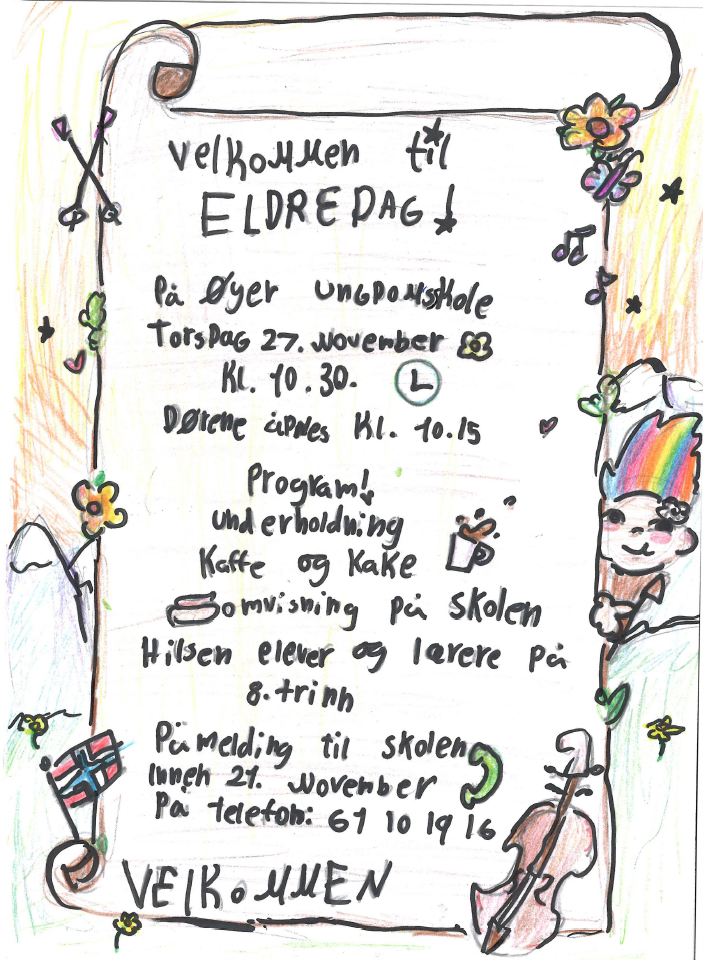 Velkommen til
ELDREDAG!
På Øyer ungdomsskole
Torsdag 27. november
Kl. 10.30.
Dørene åpnes Kl. 10.15
Program!
underholdning
Kaffe og kake
omvisning på skolen
Hilsen elever og lærere på
8. trinn
Påmelding til skolen
Innen 21. november
På telefon: 61 10 19 16
VELKOMMEN